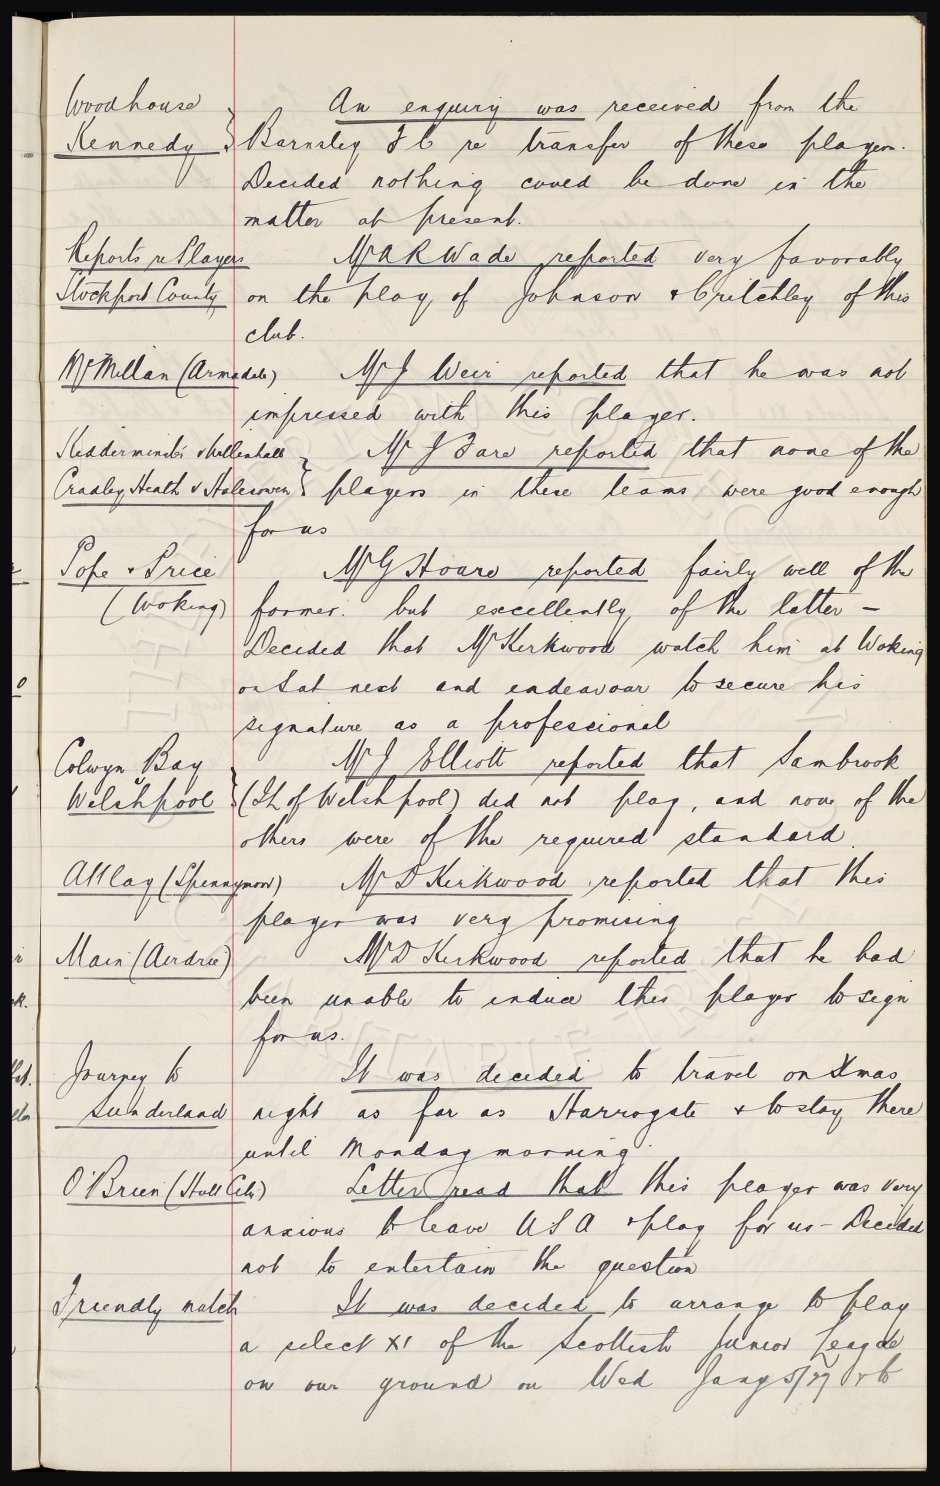 Woodhouse
Kennedy
An enquiry was received from the
Barnsley F C re transfer of these players.
Decided nothing could be done in the
matter at present.
Reports re Players
Stockport County
Mr A R Wade reported very favorably
on the play of Johnson & Critchley of this
club.
McMillan (Armadale)
Mr J Weir reported that he was not
impressed with this player.
Kidderminster v Willenhall
Cradley Heath v Halesowen
Mr J Fare reported that none of the
players in these teams were good enough
for us
Pope & Price
(Woking)
Mr G Hoare reported fairly well of the
former. but excellently of the latter -
Decided that Mr Kirkwood watch him at Woking
on Sat next and endeavour to secure his
signature as a professional
Colwyn Bay
v
Welshpool
Mr J Elliott reported that Sambrook
(I L of Welshpool) did not play, and none of the
others were of the required standard.
Attlay (Spennymoor)
Mr D Kirkwood reported that this
player was very promising
Main (Airdrie)
Mr D Kirkwood reported that he had
been unable to induce this player to sign
for us.
Journey to
Sunderland
It was decided to travel on Xmas
night as far as Harrogate & to stay there
until Monday morning.
O'Brien (Hull City)
Letter read that this player was very
anxious to leave U S A & play for us - Decided
not to entertain the question
Friendly match
It was decided to arrange to play
a select XI of the Scottish Junior League
on our ground on Wed Jany 5/27 & to